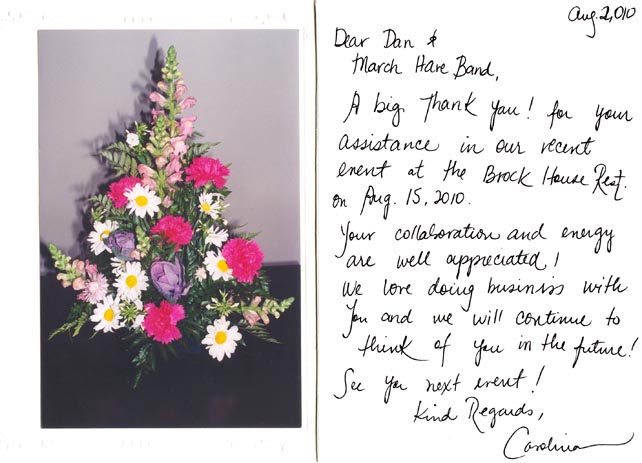 Aug. 2,010
Dear Dan &
March Hare Band,
A big Thank you! for your
assistance in our recent
event at the Brock House Rest.
on Aug. 15, 2010.
Your collaboration and energy
are well appreciated!
We love doing business with
you and we will continue to
think of you in the future!
See you next event!
Kind Regards,
Carolina